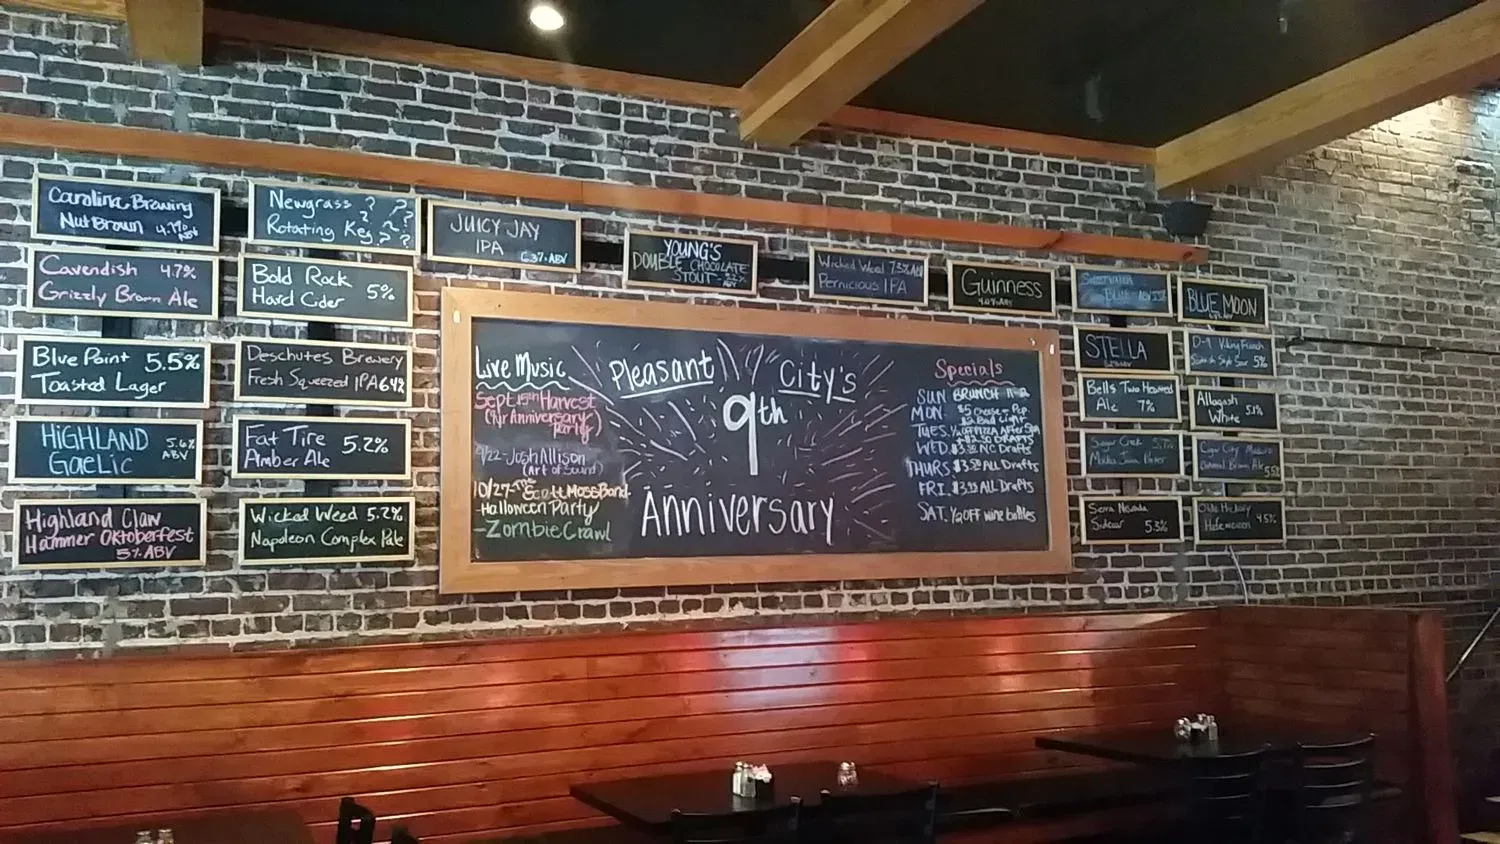 Carolina Brewing
Nut Brown 4.7%
ABV
Newgrass ? ?
Rotating Keg ? ?
JUICY JAY
IPA
6.3% ABV
YOUNG'S
DOUBLE CHOCOLATE
STOUT
Wicked Weed 7.3% ABV
Pernicious IPA
GUINNESS
ABV
BLUE MOON
Cavendish 4.7%
Grizzly Brown Ale
Bold Rock
Hard Cider 5%
STELLA
Blue Point 5.5%
Toasted Lager
Deschutes Brewery
Fresh Squeezed IPA 6.4%
Bell's Two Hearted
Ale 7%
Allagash
White 5.1%
HiGHLAND 5.6%
GaeLic ABV
Fat Tire 5.2%
Amber Ale
Highland Claw
Hammer Oktoberfest
5% ABV
Wicked Weed 5.2%
Napoleon Complex Pale
Serra Nevada
Sidecar 5.3%
Olde Hickory
Hefeweizen 4.5%
Live Music
Sept 15th Harvest
(9yr Anniversary
Party)
9/22-Josh Allison
(Art of Sound)
10/27-The Scott Moss Band
-Halloween Party
-Zombie Crawl
Pleasant City's
9th
Anniversary
Specials
SUN BRUNCH 11-2
MON $5 Cheese + Pep
$2 Bud Light
TUES. 1/2 OFF PIZZA AFTER 5PM
+ $2.50 DRAFTS
WED. $3.50 NC Drafts
THURS $3.50 ALL Drafts
FRI. $3.50 ALL Drafts
SAT. 1/2 OFF wine bottles